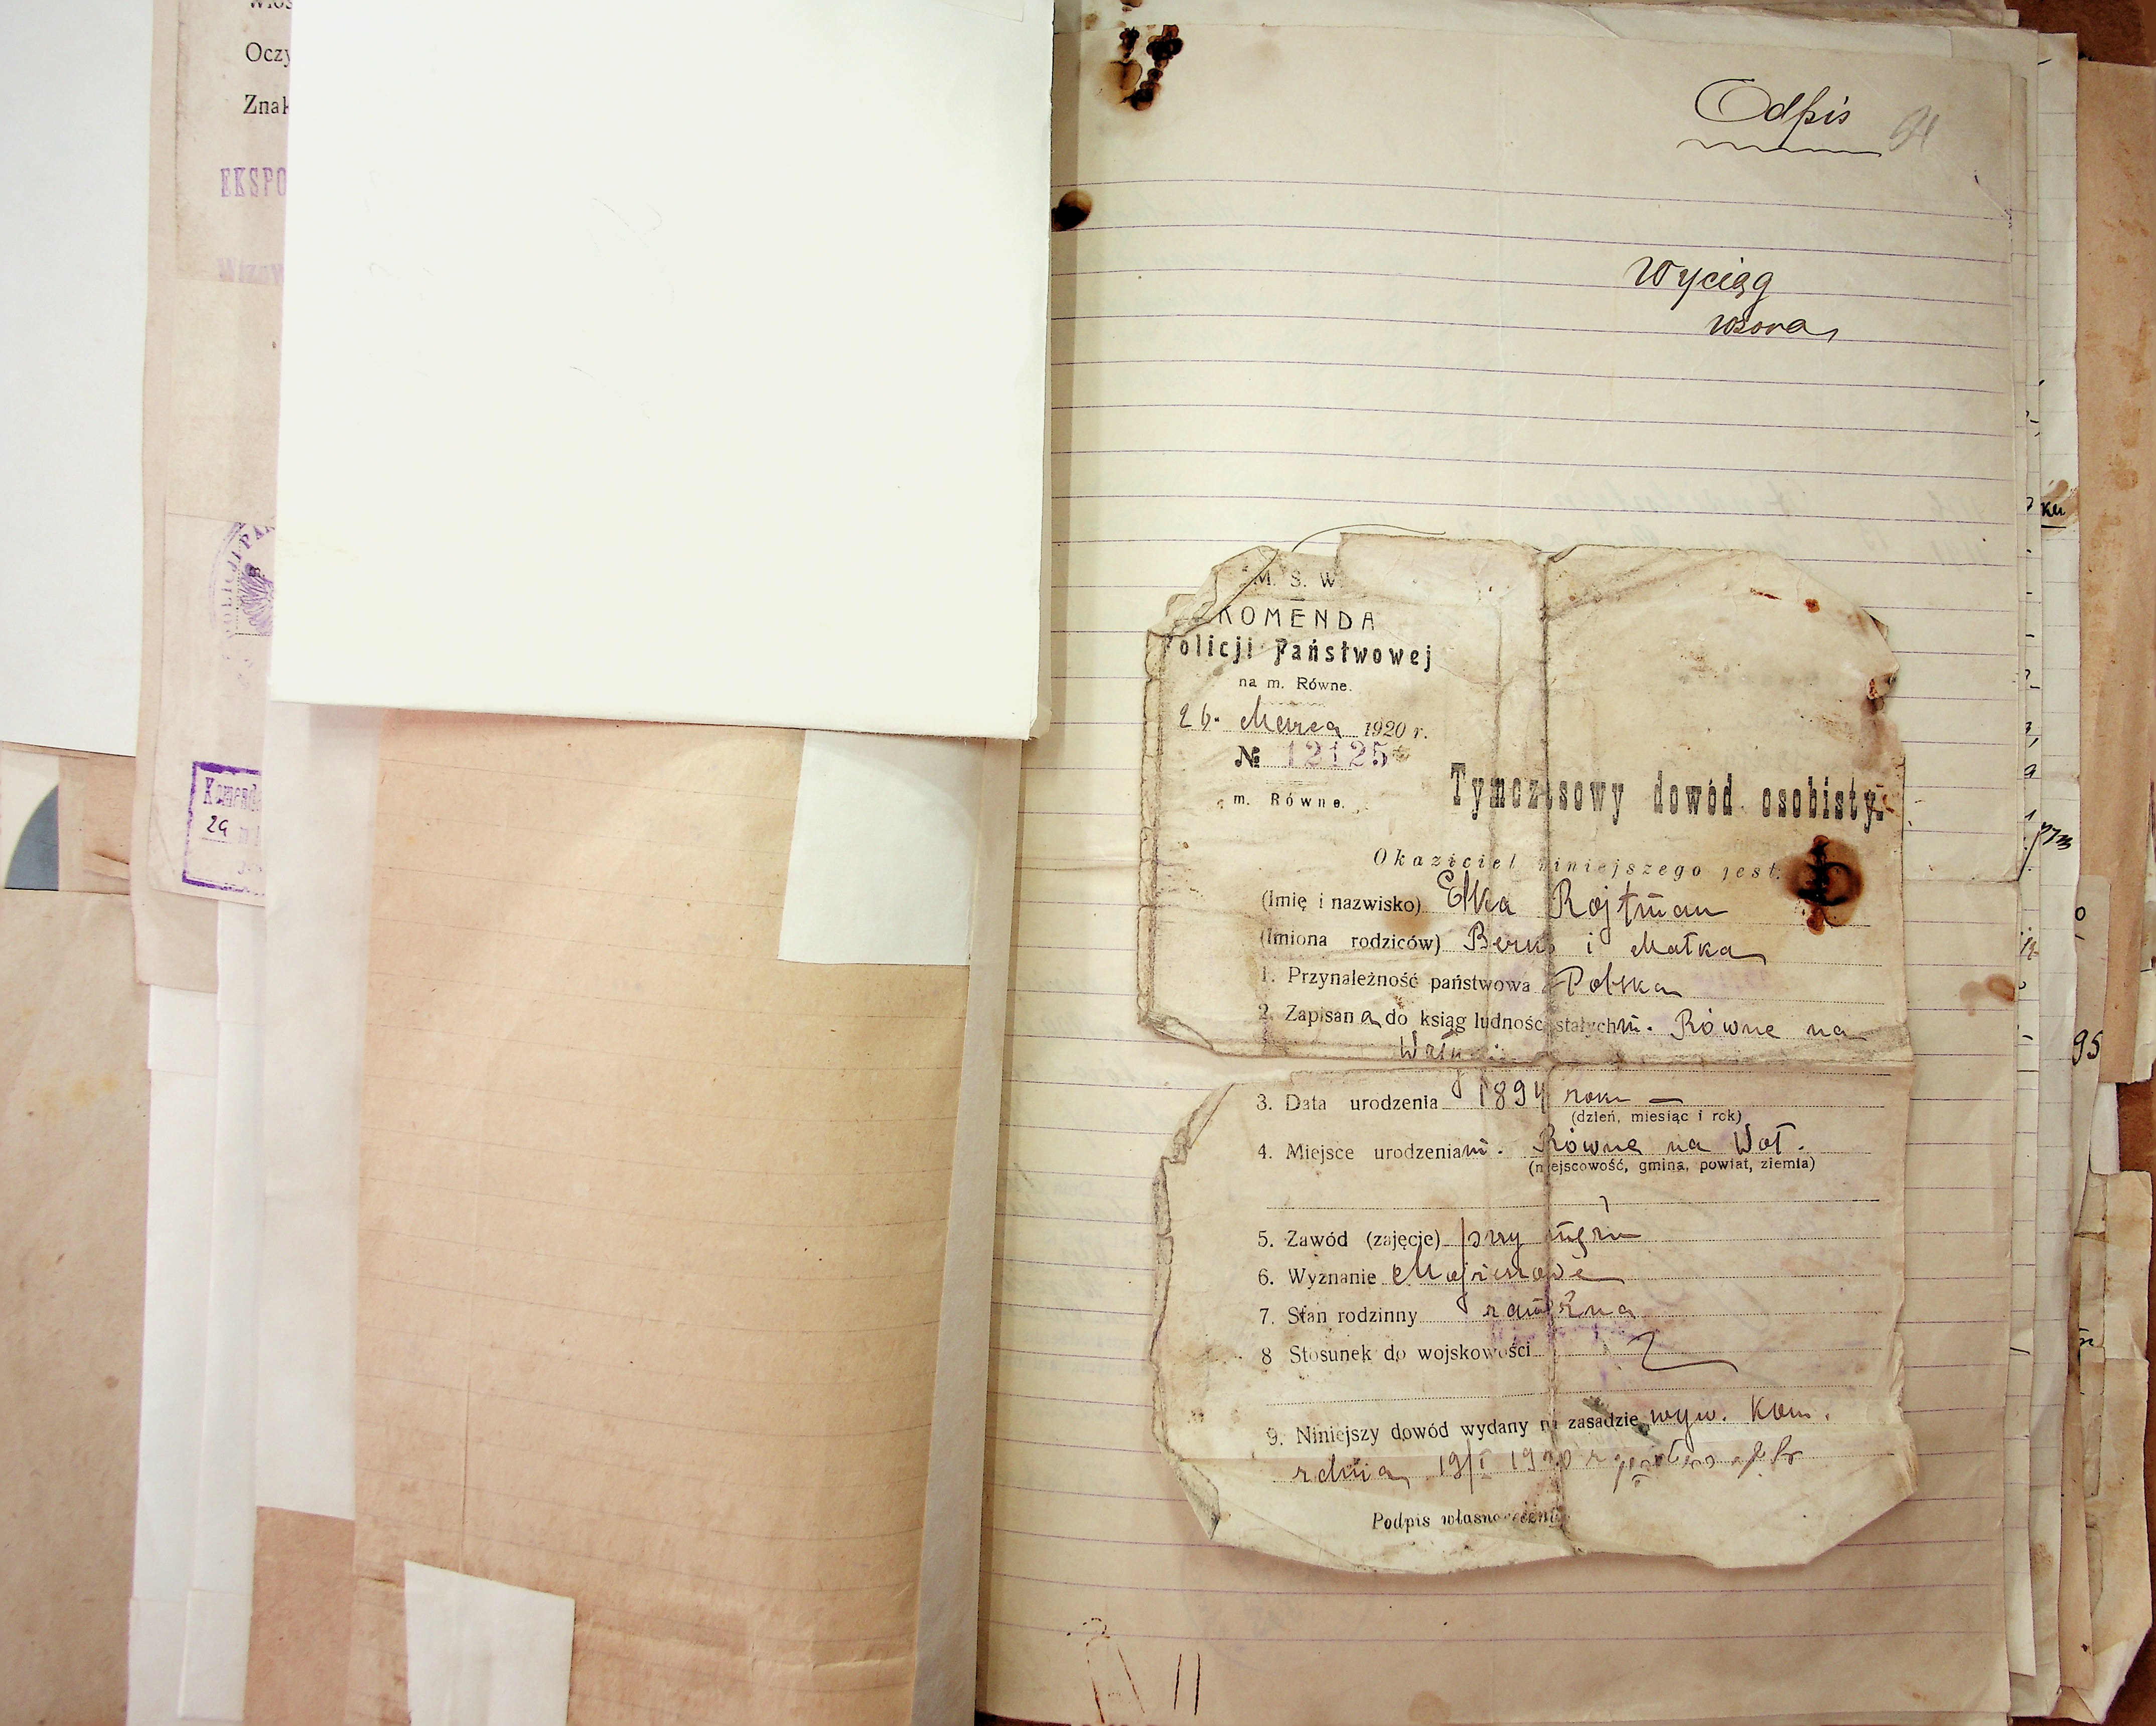 Oczy
Znak
EKSPO
Komend
29
Odpis
94
Wyciąg
M. S. W.
KOMENDA
Policji Państwowej
na m. Równe.
26. Marca 1920 r.
№ 12125
m. Równe.
Tymczasowy dowód osobisty.
Okaziciel niniejszego jest:
(Imię i nazwisko) Elka Rojtman
(Imiona rodziców) Berko i Małka
1. Przynależność państwowa Polska
2. Zapisana do ksiąg ludności stałych m. Równe na
Wołyniu
3. Data urodzenia 1894 roku —
(dzień, miesiąc i rok)
4. Miejsce urodzenia m. Równe na Woł.
(miejscowość, gmina, powiat, ziemia)
5. Zawód (zajęcie) przy mężu
6. Wyznanie Mojżeszowe
7. Stan rodzinny zamężna
8 Stosunek do wojskowości
9. Niniejszy dowód wydany na zasadzie wyw. Kom.
z dnia 19/I 1920 r
Podpis własnoręczny
ku
95